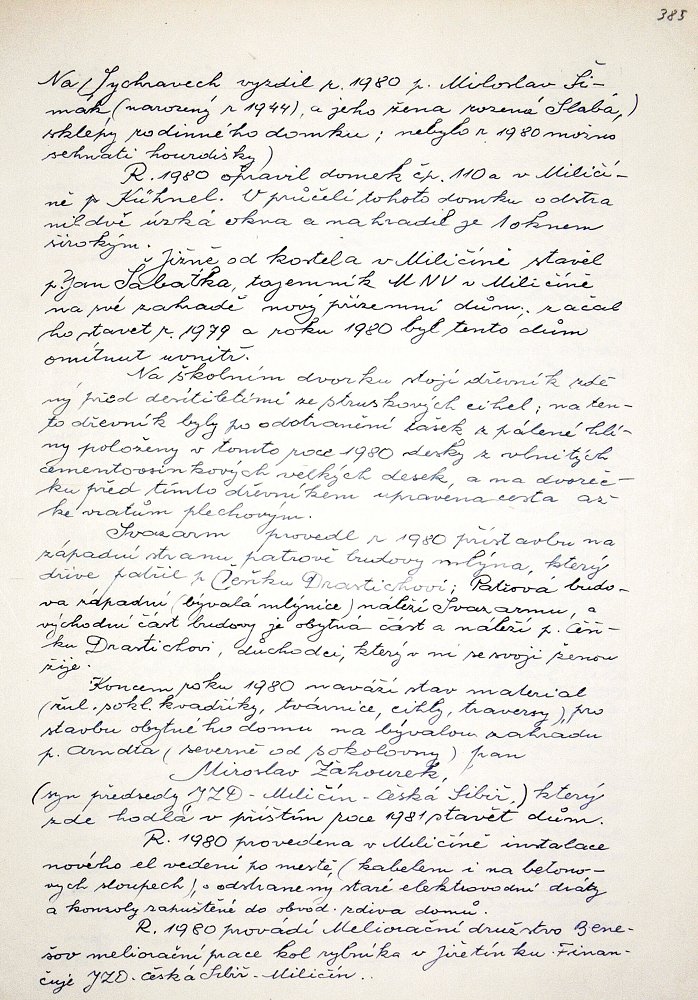 385
Na Tychravech vyzdil r. 1980 p. Miloslav Ši-
mák (narozený r 1944), a jeho žena rozená Slabá,)
sklepy rodinného domku; nebylo r 1980 možno
sehnati hourdisky)
R. 1980 opravil domek čp. 110a v Miličí-
ně p Kühnel. V průčelí tohoto domku odstra
nil dvě úzká okna a nahradil je 1 oknem
širokým.
Jižně od kostela v Miličíně stavěl
p. Jan Šabatka, tajemník MNV v Miličíně
na své zahradě nový přízemní dům.. začal
ho stavět r. 1979 a roku 1980 byl tento dům
omítnut uvnitř.
Na školním dvorku stojí dřevník zdě-
ný před desítiletími ze struskových cihel; na ten-
to dřevník byly po odstranění tašek z pálené hlí-
ny položeny v tomto roce 1980 desky z vlnitých
cementoosinkových velkých desek, a na dvoreč-
ku před tímto dřevníkem upravena cesta až
ke vratům plechovým.
Svazarm provedl r 1980 přístavbu na
západní stranu patrově budovy mlýna, který
dříve patřil p Čeňku Drastichovi; Patrová budo-
va západní (bývalá mlýnice) náleží Svazarmu, a
východní část budovy je obytná část a náleží p. Čeň-
ku Drastichovi, důchodci, který v ní se svojí ženou
žije.
Koncem roku 1980 naváží stav material
(žul. sokl. kvadříky, tvárnice, cihly, traversy), pro
stavbu obytného domu na bývalou zahradu
p. Arndta (severně od sokolovny) pan
Miroslav Záhourek,
(syn předsedy JZD - Miličín - Česká Sibiř,) který
zde hodlá v příštím roce 1981 stavět dům.
R. 1980 provedena v Miličíně instalace
nového el vedení po městě, (kabelem i na betono-
vých sloupech), odstraneny staré elektrovodní dráty
a konsoly zapuštěné do obvod. zdiva domů.
R. 1980 provádí Meliorační družstvo Bene-
šov meliorační prace kol rybníka v Jiřetínku. Finan-
čuje JZD. Česká Sibiř - Miličín..